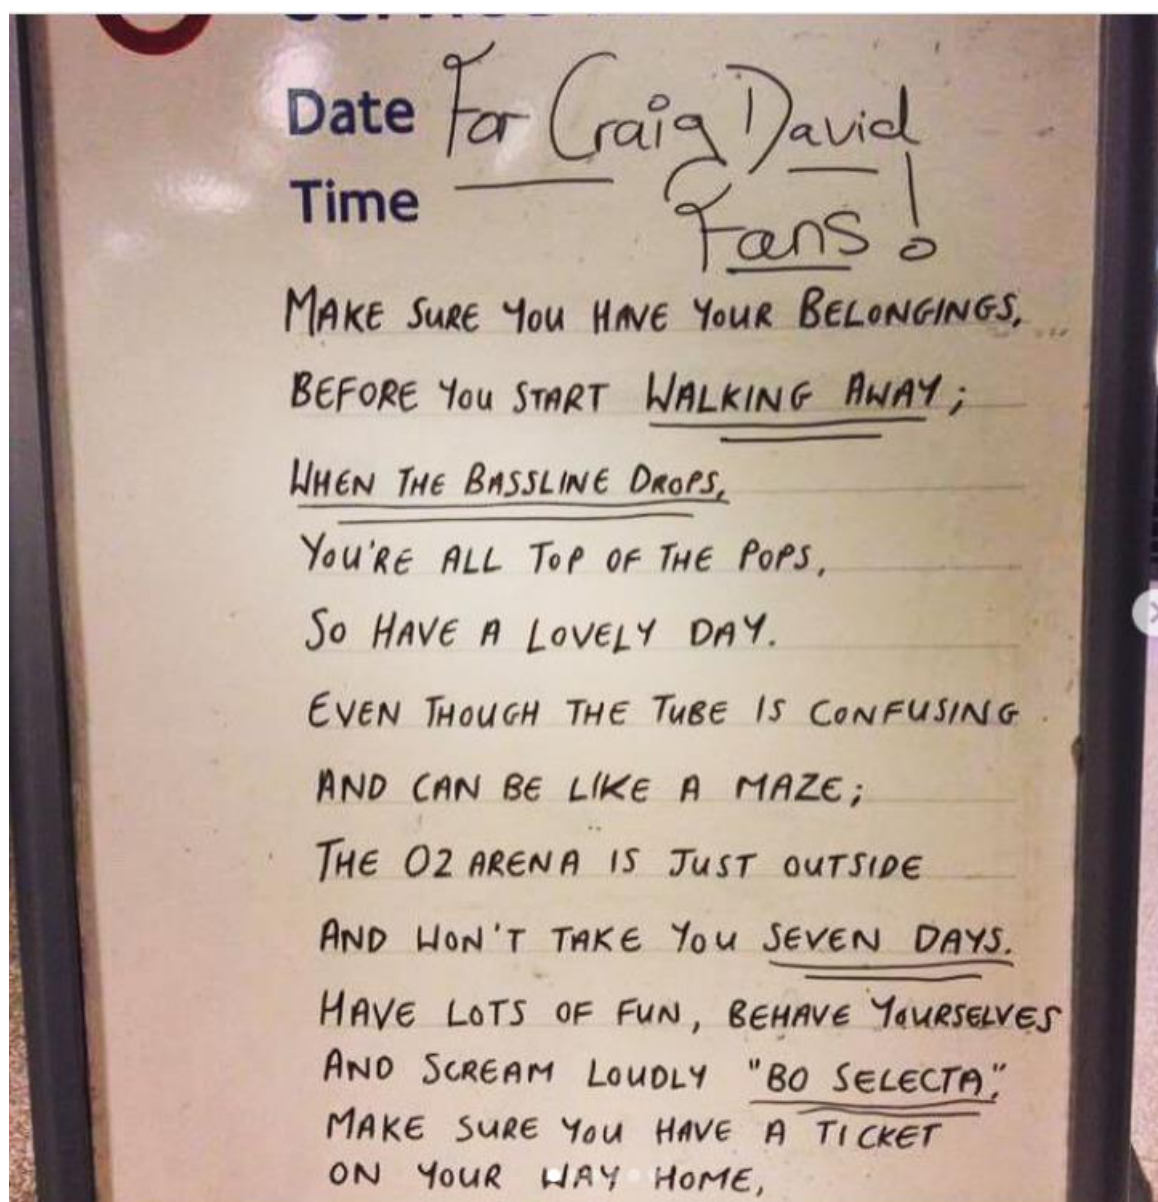 Date For Craig David
Time Fans!
MAKE SURE YOU HAVE YOUR BELONGINGS,
BEFORE YOU START WALKING AWAY;
WHEN THE BASSLINE DROPS,
YOU'RE ALL TOP OF THE POPS,
SO HAVE A LOVELY DAY.
EVEN THOUGH THE TUBE IS CONFUSING
AND CAN BE LIKE A MAZE;
THE O2 ARENA IS JUST OUTSIDE
AND WON'T TAKE YOU SEVEN DAYS.
HAVE LOTS OF FUN, BEHAVE YOURSELVES
AND SCREAM LOUDLY "BO SELECTA",
MAKE SURE YOU HAVE A TICKET
ON YOUR WAY HOME,